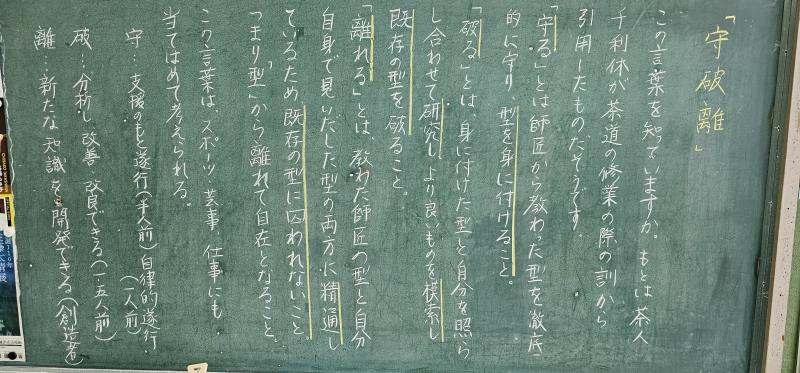 「守破離」
この言葉を知っていますか。もとは茶人
千利休が茶道の修業の際の訓から
引用したものだそうです。
「守る」とは師匠から教わった型を徹底
的に守り、型を身に付けること。
「破る」とは、身に付けた型と自分を照ら
し合わせて研究し、より良いものを模索し
既存の型を破ること。
「離れる」とは、教わた師匠の型と自分
自身で見いだした型の両方に精通し
ているため、既存の型に囚われないこと。
つまり「型」から離れて自在となること。
この言葉は、スポーツ、芸事、仕事にも
当てはめて考えられる。
守…支援のもと遂行(半人前)自律的遂行・
(一人前)
破…分析し、改善・改良できる(一・五人前)
離…新たな知識を開発できる(創造者)